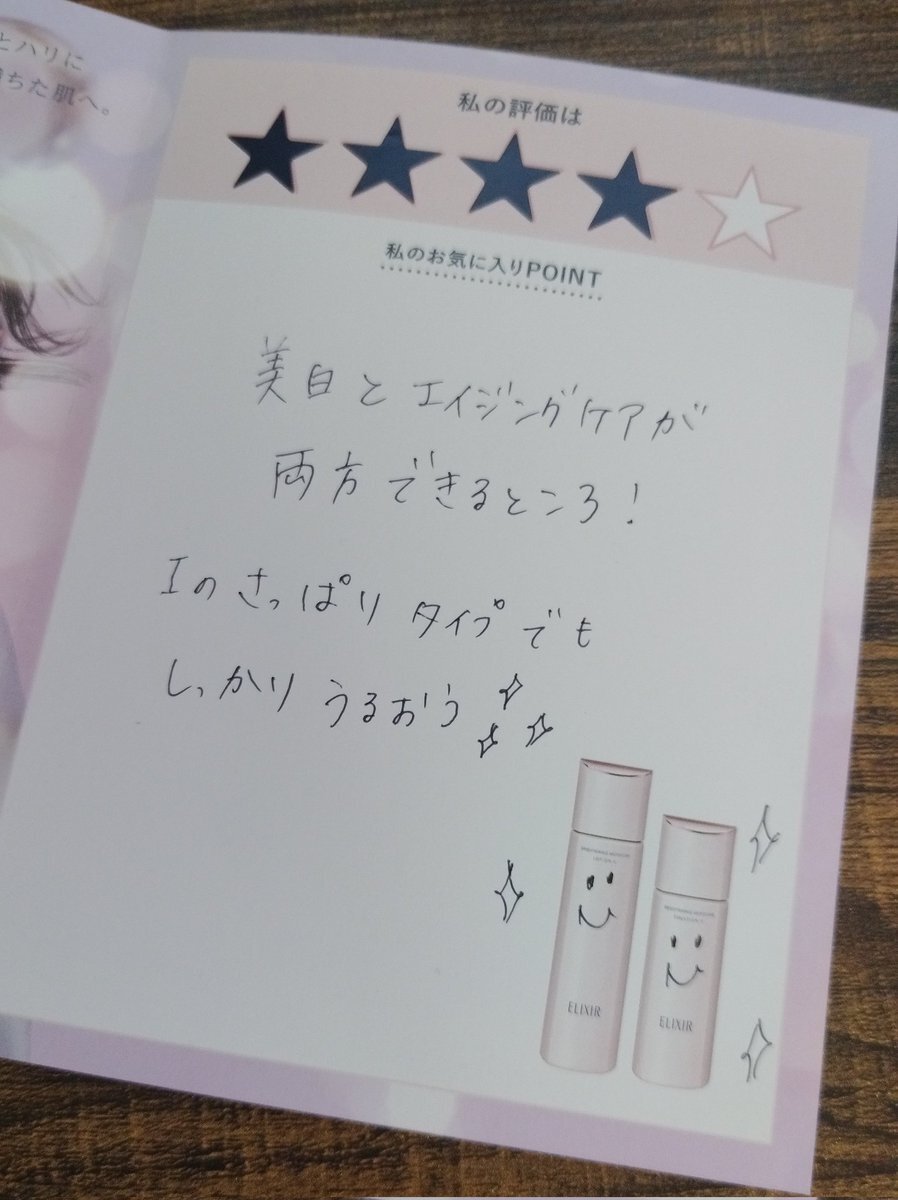 とハリに
ちた肌へ。
私の評価は
私のお気に入りPOINT
美白とエイジングケアが
両方できるところ!
Iのさっぱりタイプでも
しっかりうるおう
BRIGHTENING MOISTURE
LOTION
BRIGHTENING MOISTURE
EMULSION
ELIXIR
ELIXIR